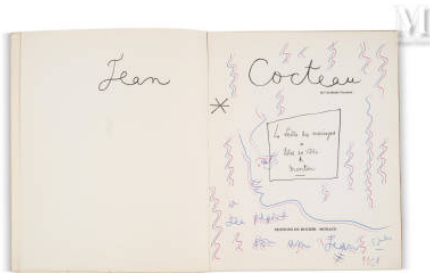 Jean Cocteau
de l'Académie Française
La Salle des mariages
Hôtel de Ville
de
Menton
EDITIONS DU ROCHER - MONACO
à
son ami Jean
1958
M